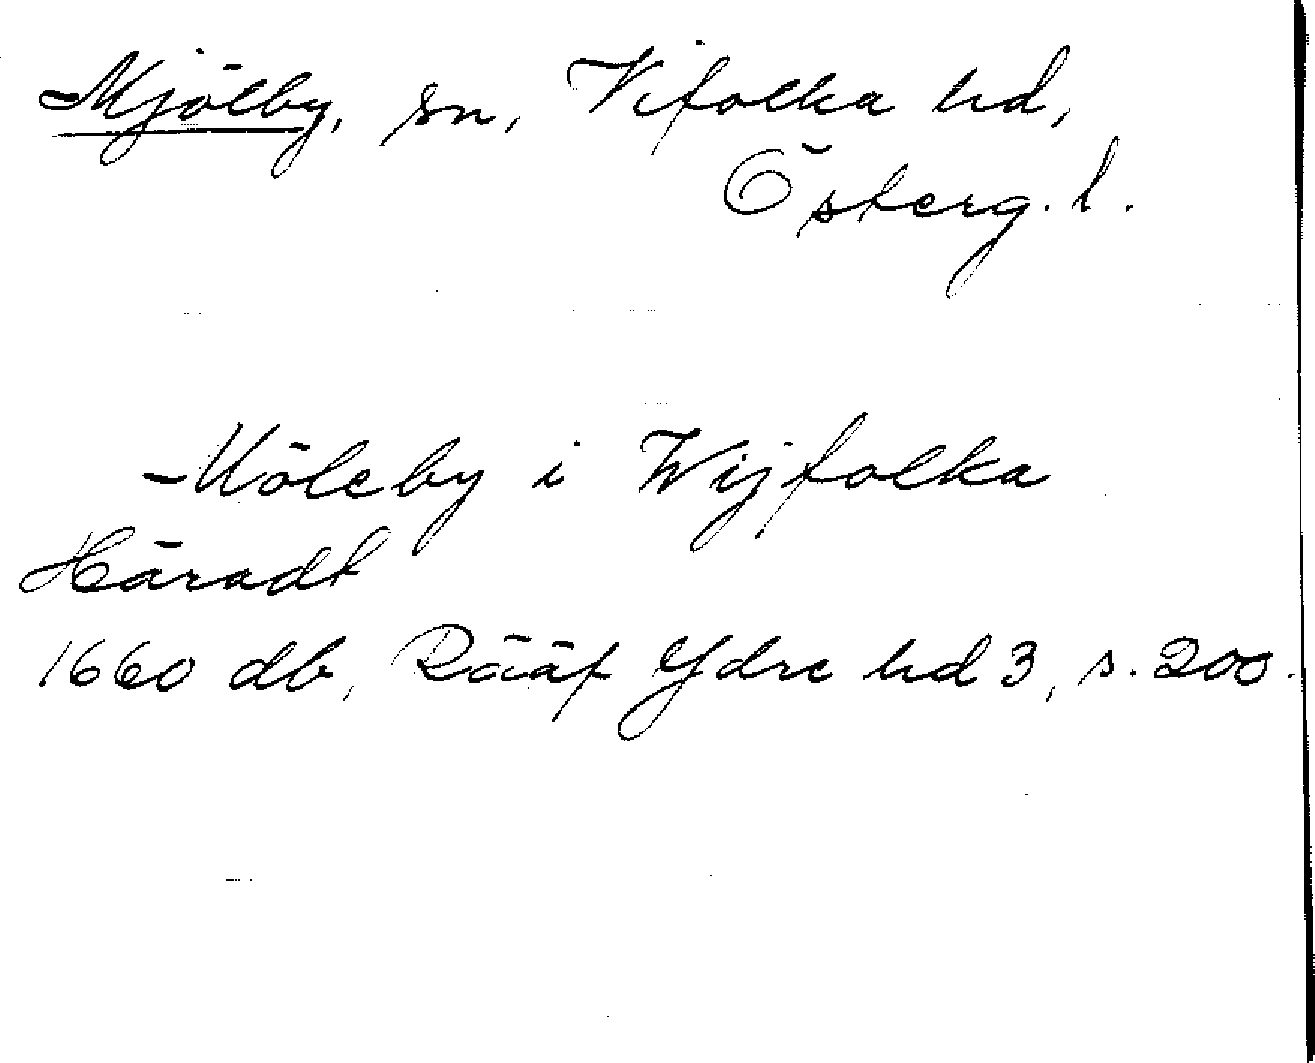 Mjölby, sn, Vifolka hd,
Österg. l.
Möleby i Wijfolka
Häradt
1660 db, Rääf Ydre hd 3, s. 200.